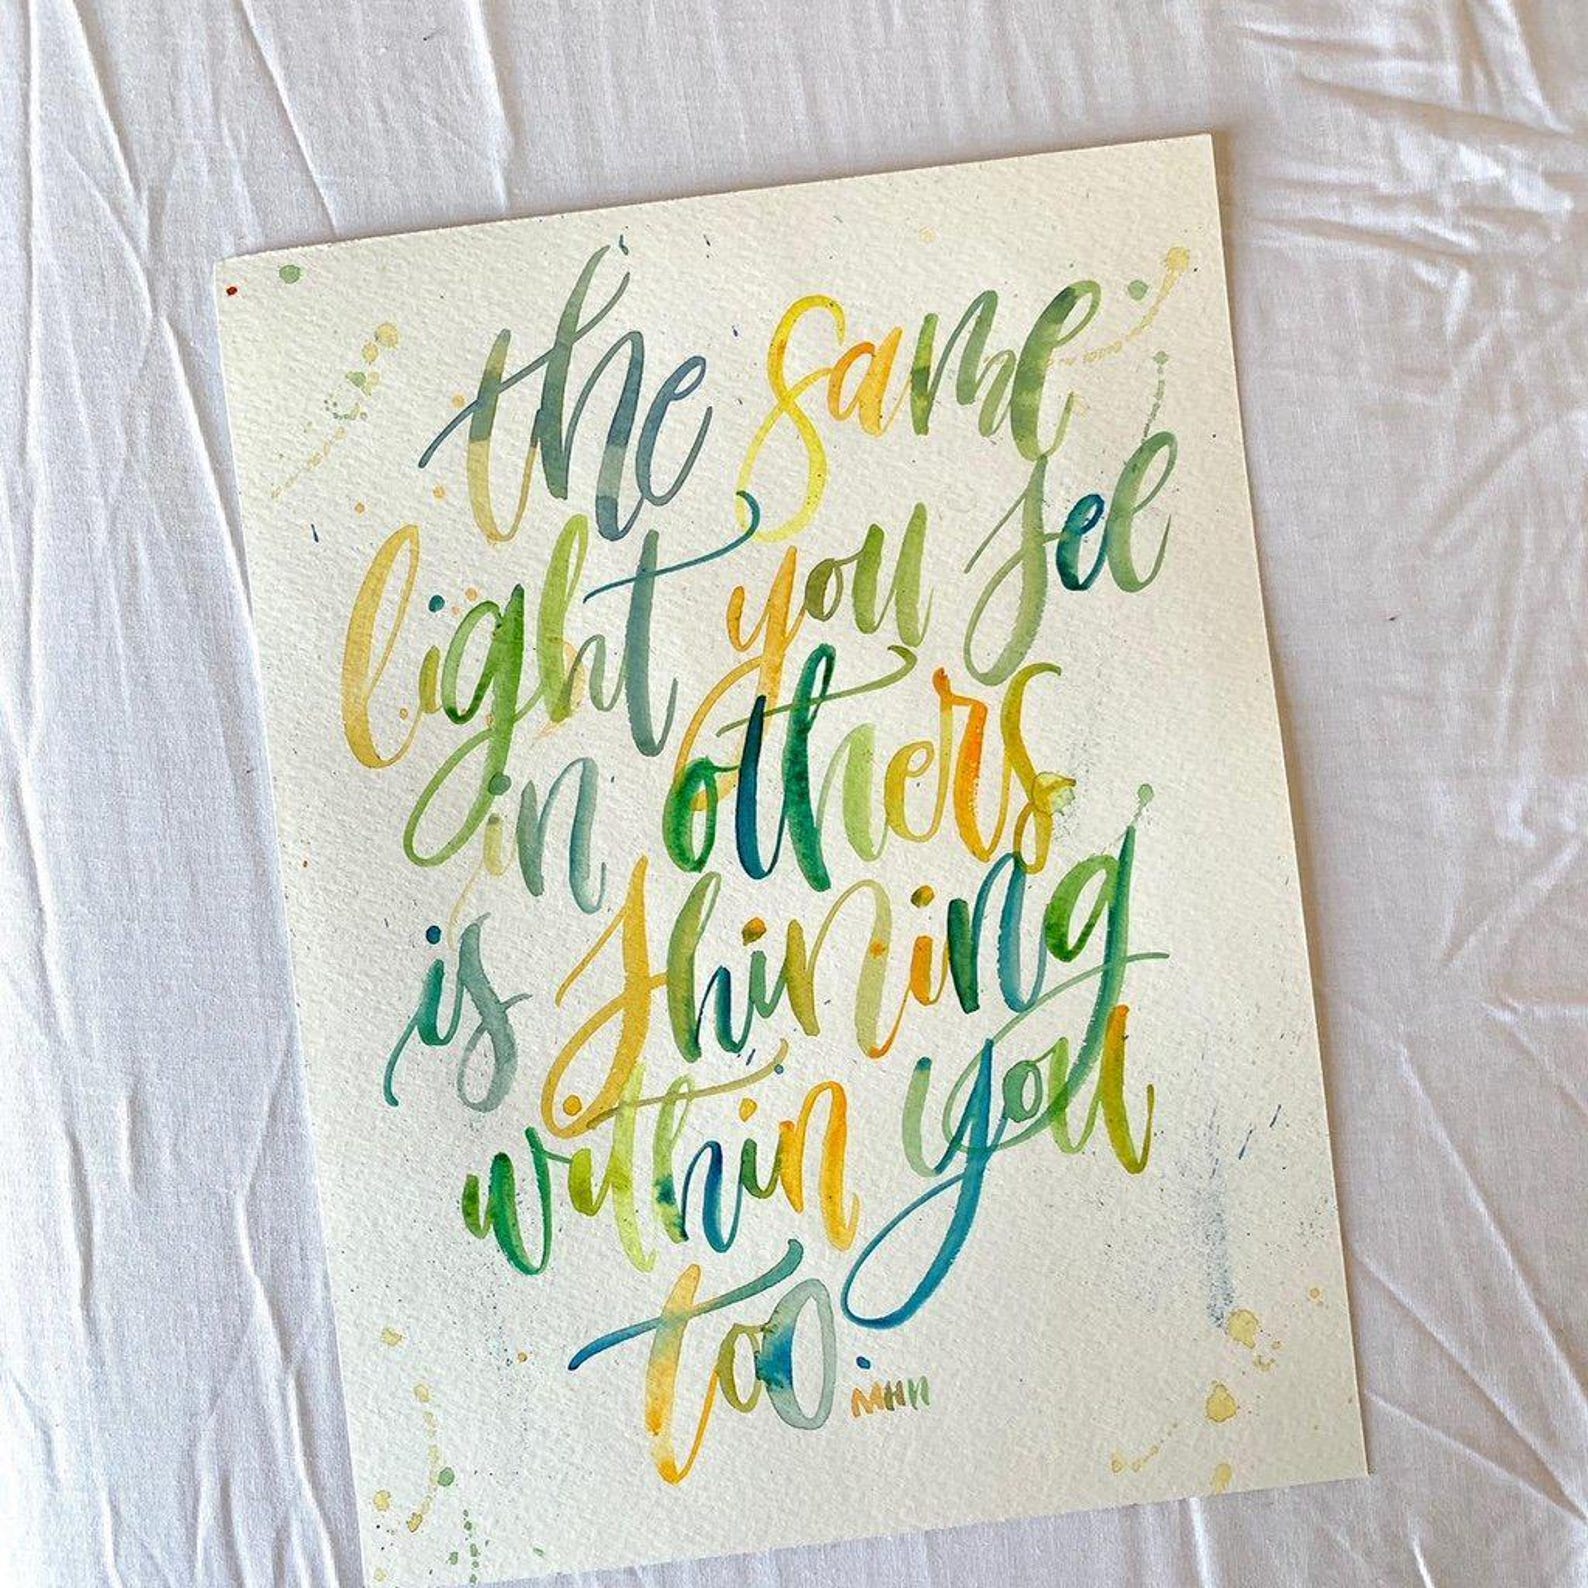 the same
light you see
in others
is shining
within you
too.
MHN